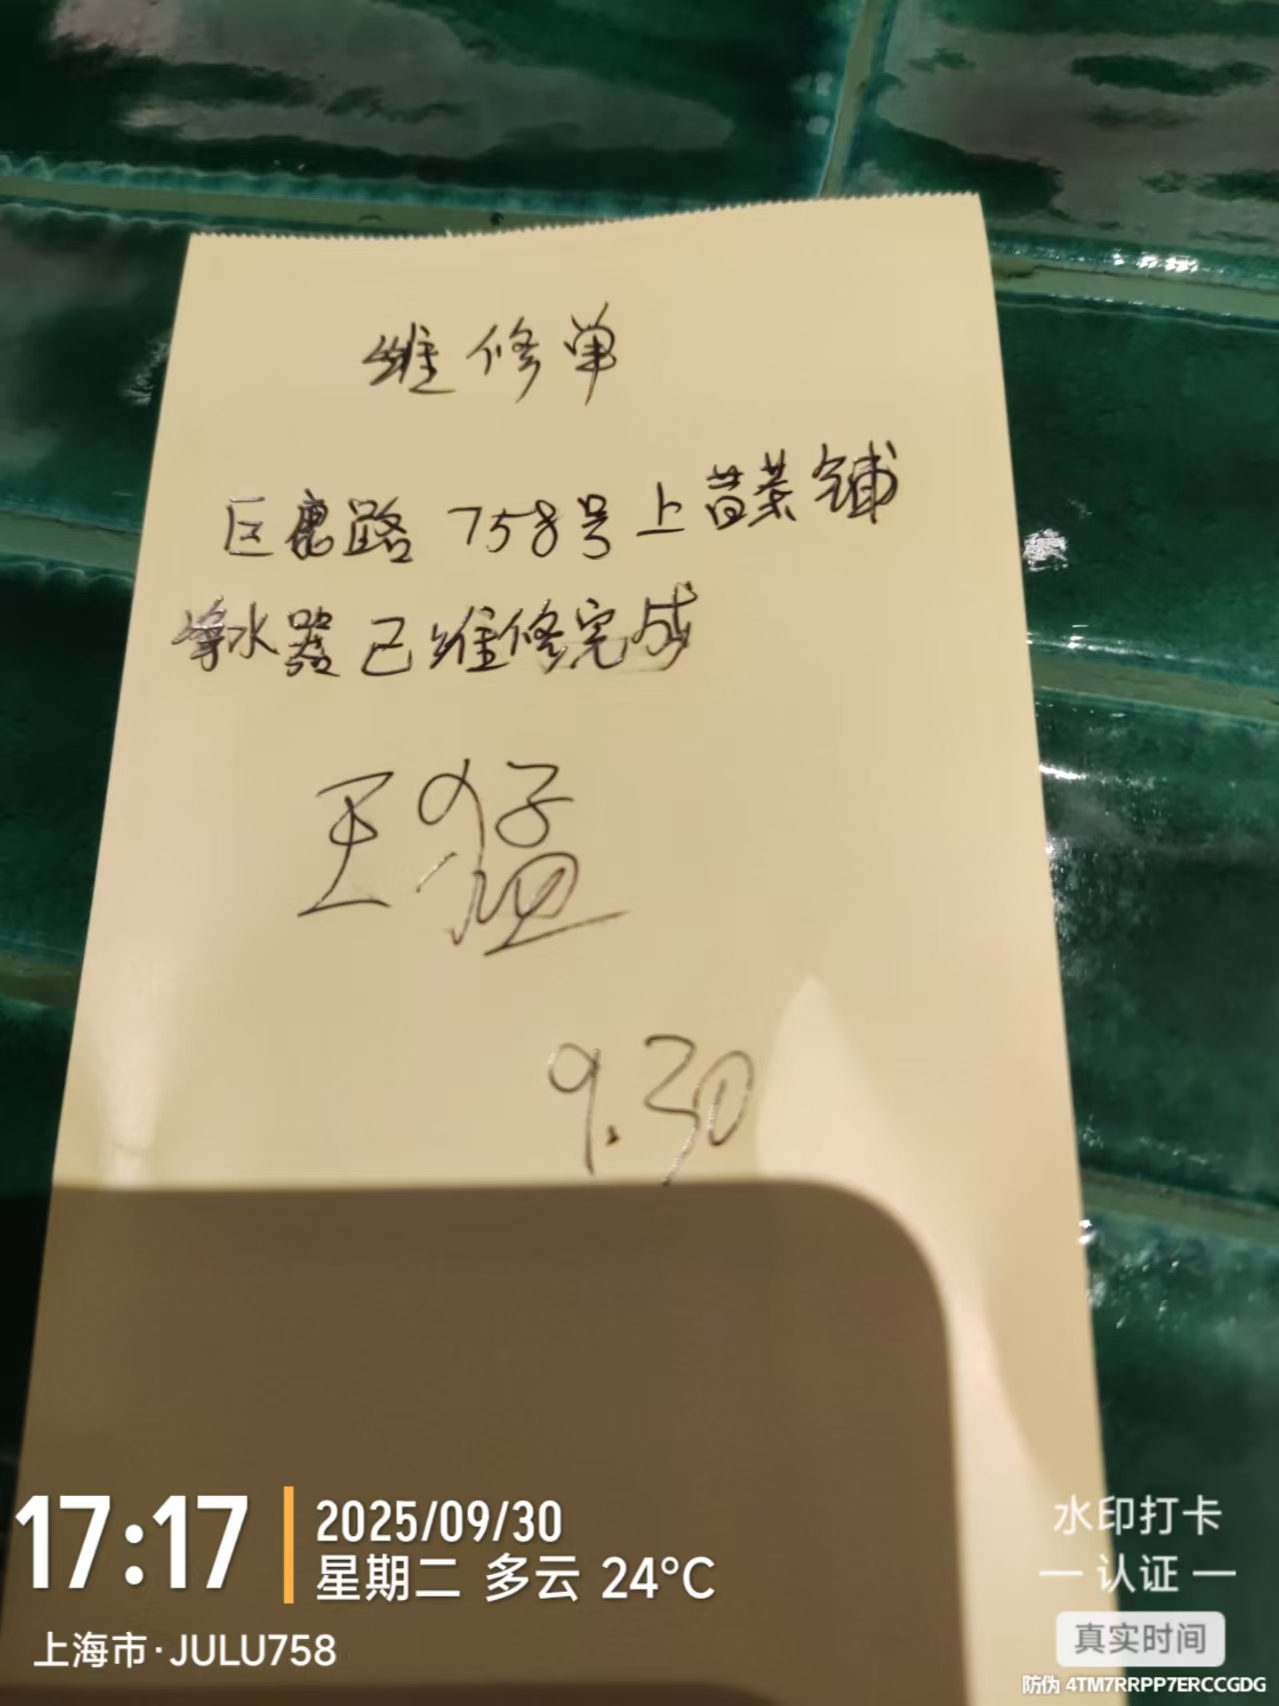 维修单
巨鹿路 758号上昔菜铺
净水器已维修完成
王猛
9.30
17:17
2025/09/30
星期二 多云 24°C
上海市·JULU758
水印打卡
认证
真实时间
防伪 4TM7RRPP7ERCCGDG